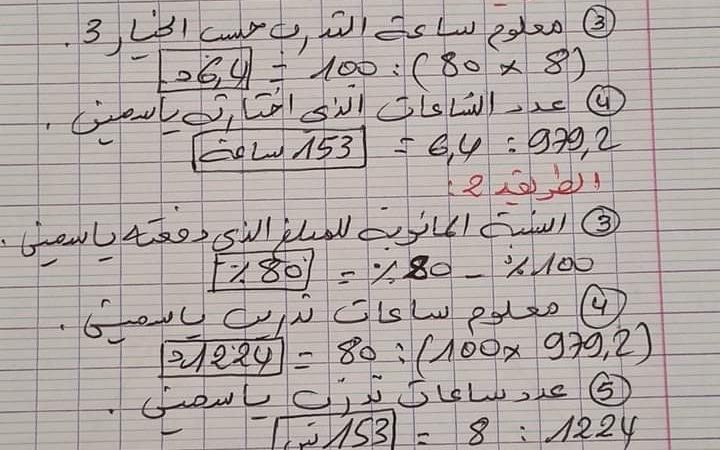 ③ معلوم ساعة التدرب حسب الخيار 3.
(8 × 80) : 100 = 6,4د
④ عدد الساعات الذي اختارته ياسمين.
979,2 : 6,4 = 153 ساعة
الطريقة 2:
③ النسبة المائوية للمبلغ الذي دفعته ياسمين.
100٪ - 80٪ = 80٪
④ معلوم ساعات تدريب ياسمين.
(979,2 ×100) : 80 = 1224د
⑤ عدد ساعات تدرب ياسمين.
1224 : 8 = 153 س